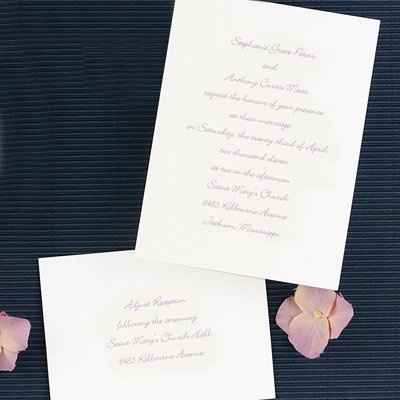 Stephanie Grace Peters
and
Anthony Curtis Marc
request the honour of your presence
at their marriage
on Saturday, the twenty third of April
two thousand eleven
at two in the afternoon
Saint Mary's Church
1982 Kilbourne Avenue
Jackson, Mississippi
Reception
following the ceremony
Saint Mary's Church Hall
1982 Kilbourne Avenue